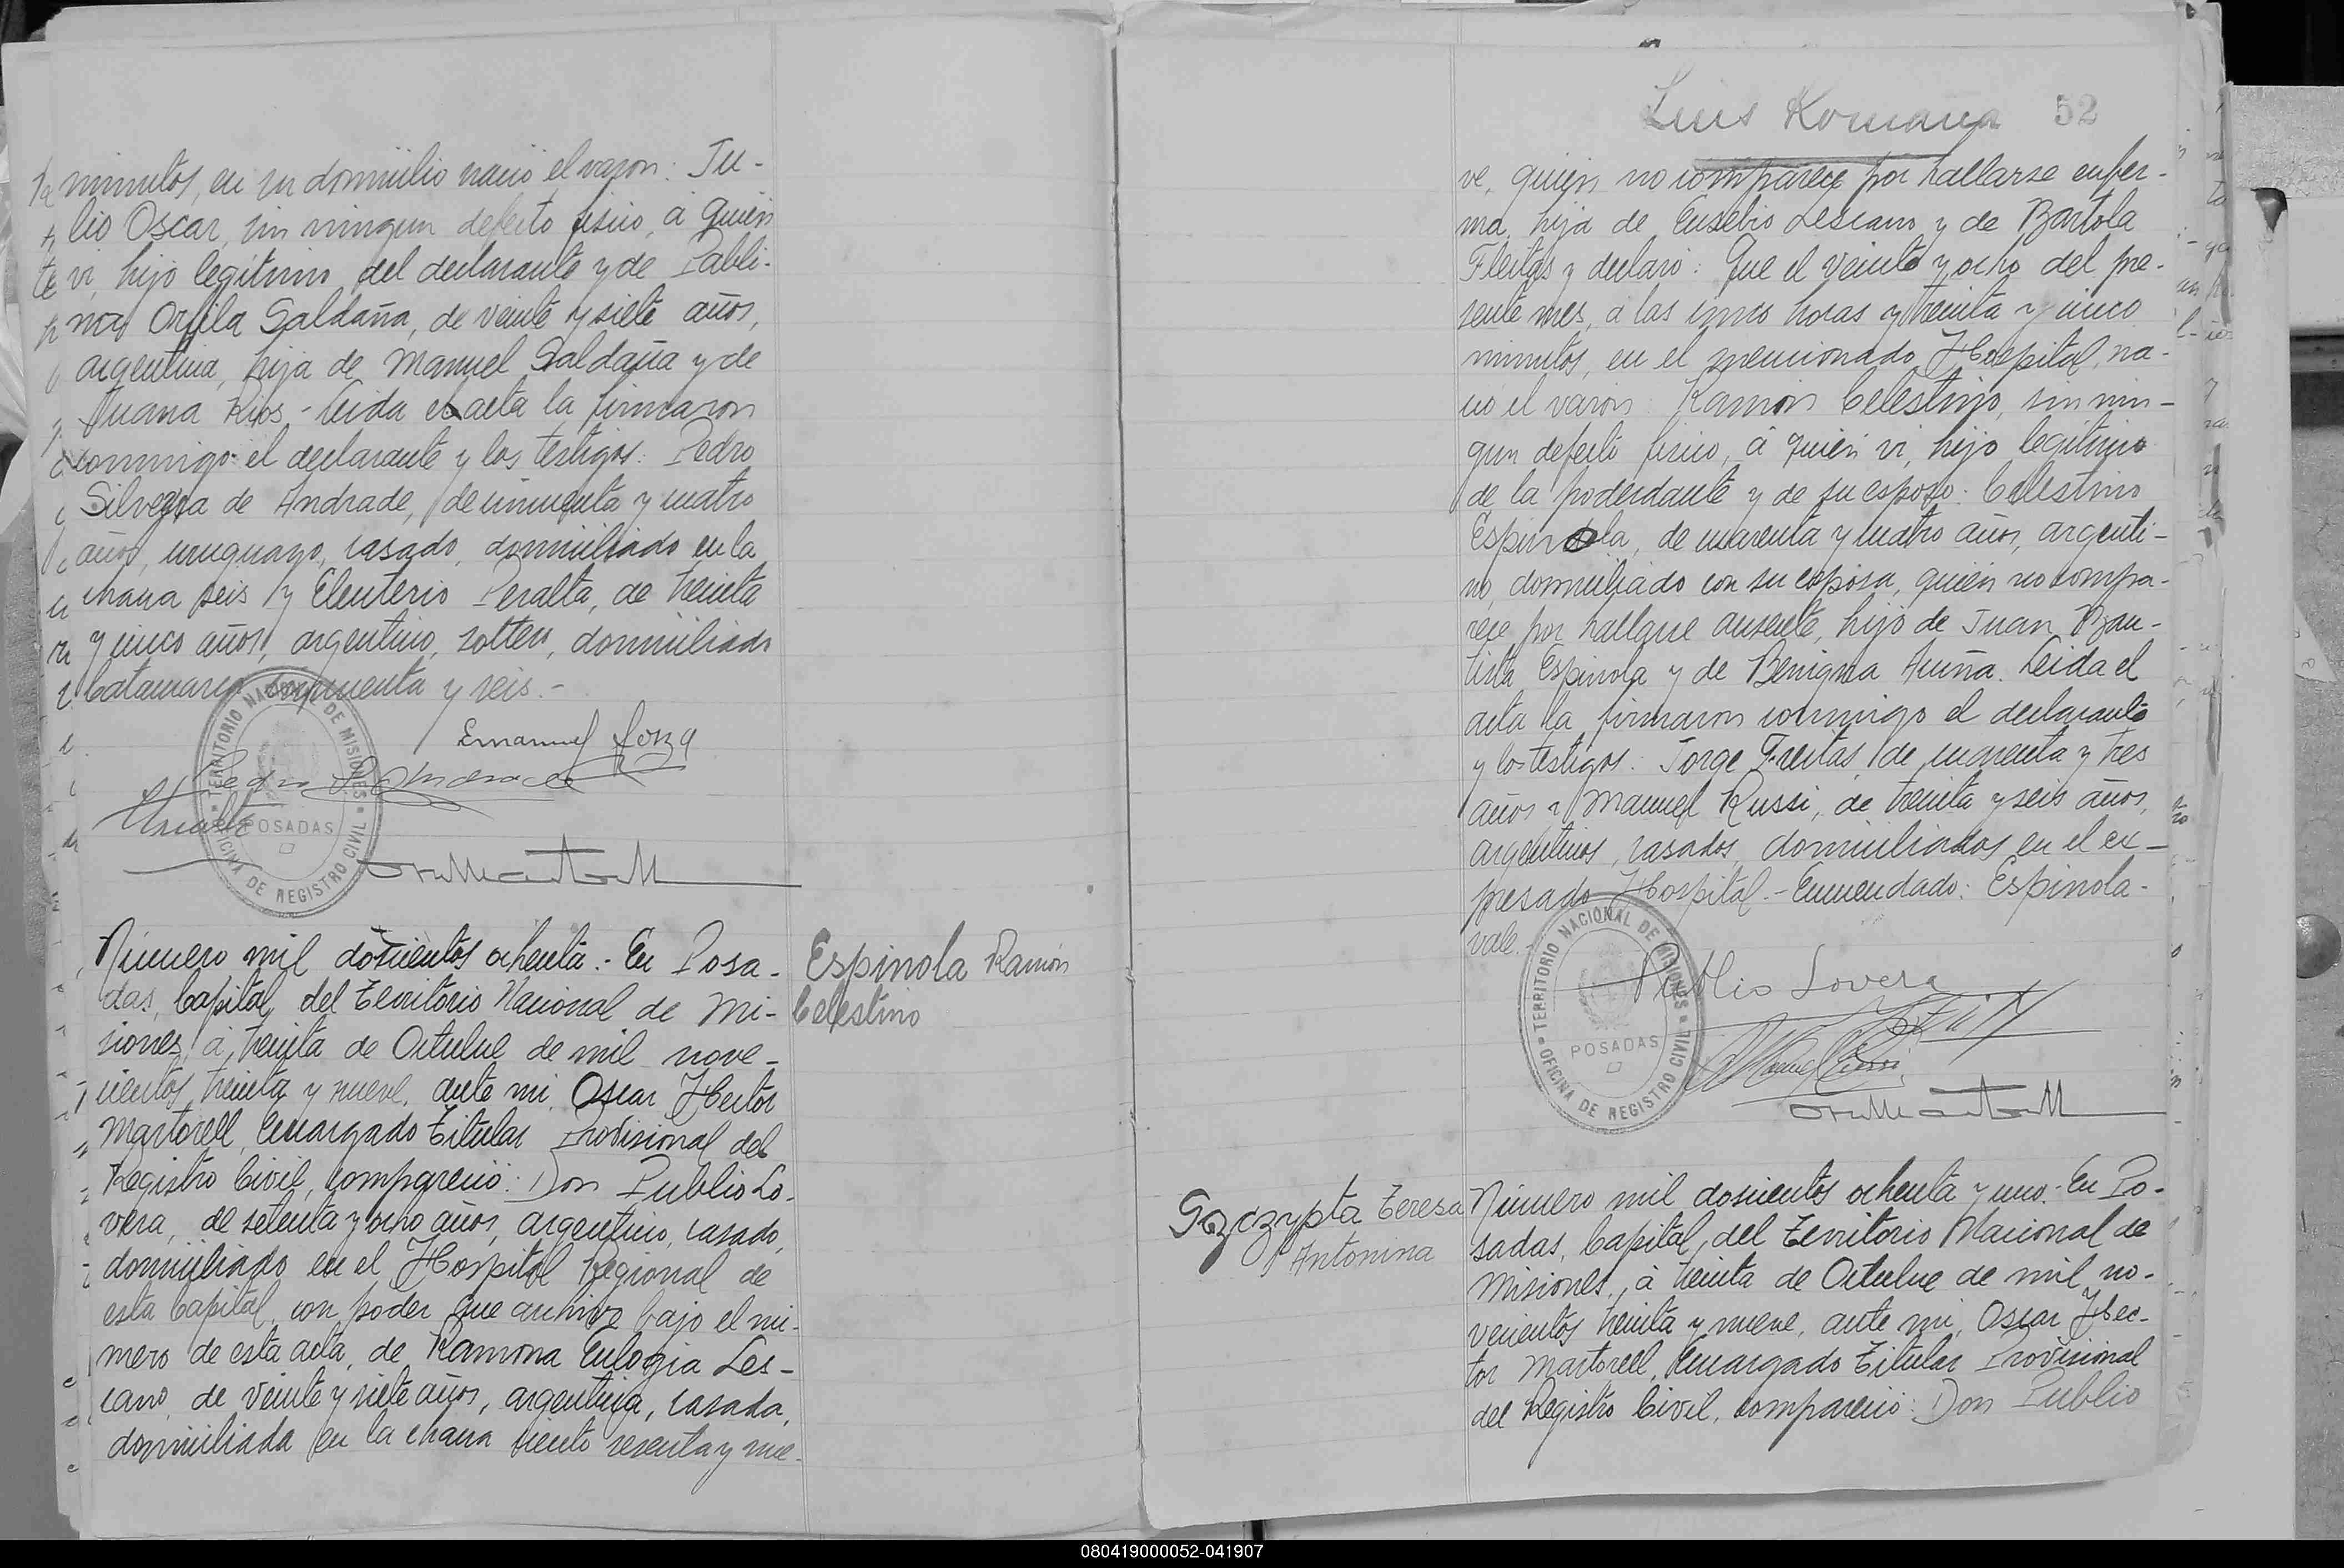 minutos, en su domicilio nació el varon: Ju-
lio Oscar, sin ningun defecto fisico, á quien
vi, hijo legítimo del declarante y de Pabli-
na Orfila Saldaña, de veinte y siete años,
argentina, hija de Manuel Saldaña y de
Juana Rios.- Leida el acta la firmaron
conmigo el declarante y los testigos: Pedro
Silveyra de Andrade, de cincuenta y cuatro
años, uruguayo, casado, domiciliado en la
chacra seis y Eleuterio Peralta, de treinta
y cinco años, argentino, soltero, domiciliado
Catamarca cincuenta y seis.-
Emanuel
Pedro S. Andrade
TERRITORIO NACIONAL DE MISIONES
POSADAS
OFICINA DE REGISTRO CIVIL
Número mil doscientos ochenta.- En Posa-
das, Capital del Territorio Nacional de Mi-
siones, á treinta de Octubre de mil nove-
cientos treinta y nueve, ante mi, Oscar Hector
Martorell, Encargado Titular Provisional del
Registro Civil, compareció: Don Publio Lo-
vera, de setenta y ocho años, argentino, casado,
domiciliado en el Hospital Regional de
esta Capital, con poder que archivo bajo el nú-
mero de esta acta, de Ramona Eulogia Les-
cano, de veinte y siete años, argentina, casada,
domiciliada en la chacra ciento sesenta y nue-
Espinola Ramón
Celestino
Luis Romaña 52
ve, quien no comparece por hallarse enfer-
ma, hija de Eusebio Lescano y de Bartola
Fleitas y declaró: Que el veinte y ocho del pre-
sente mes, á las cinco horas y treinta y cinco
minutos, en el mencionado Hospital, na-
ció el varon: Ramon Celestino, sin nin-
gun defecto fisico, á quien vi, hijo legítimo
de la poderdante y de su esposo: Celestino
Espinola, de cuarenta y cuatro años, argenti-
no, domiciliado con su esposa, quien no compa-
rece por hallarse ausente, hijo de Juan Bau-
tista Espinola y de Benigna Acuña. Leida el
acta la firmaron conmigo el declarante
y los testigos: Jorge Freitas, de cuarenta y tres
años y Manuel Russi, de treinta y seis años,
argentinos, casados, domiciliados en el ex-
presado Hospital.- Enmendado: Espinola-
vale.-
Publio Lovera
Manuel Russi
TERRITORIO NACIONAL DE MISIONES
POSADAS
OFICINA DE REGISTRO CIVIL
Teresa
Antonina
Número mil doscientos ochenta y uno.- En Po-
sadas, Capital del Territorio Nacional de
Misiones, á treinta de Octubre de mil no-
vecientos treinta y nueve, ante mi, Oscar Hec-
tor Martorell, Encargado Titular Provisional
del Registro Civil, compareció: Don Publio
080419000052-041907